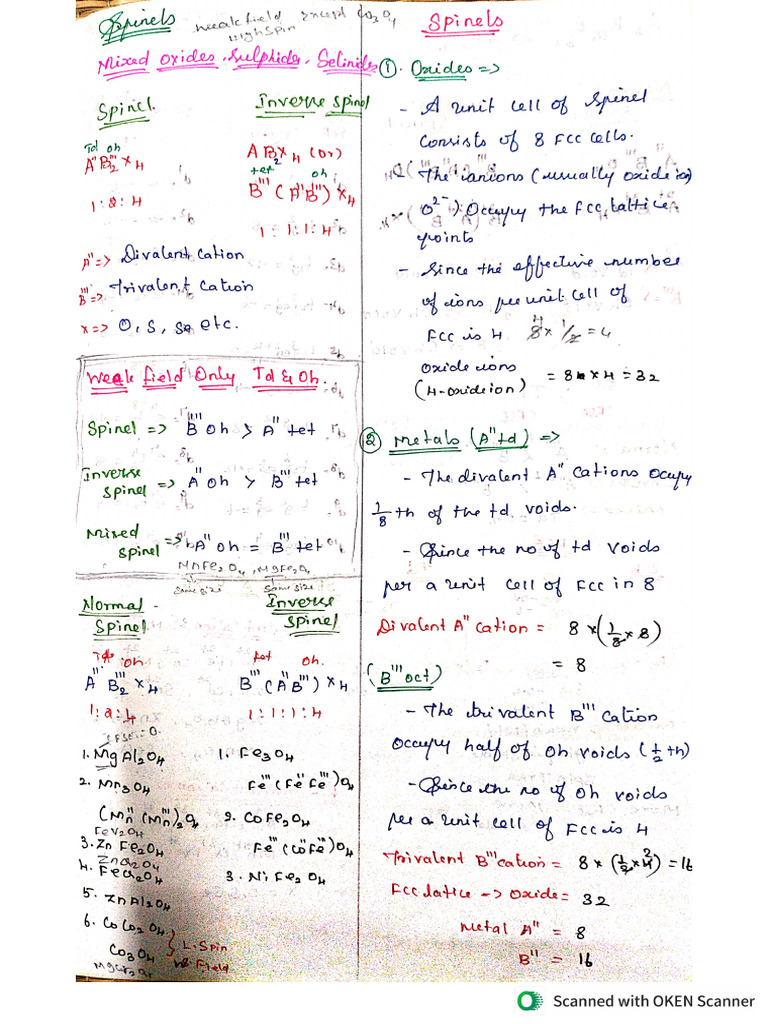 Spinels weak field except Co₃O₄
High Spin
Mixed Oxides, Sulphide, Selinides
Spinel Inverse Spinel
Td Oh
A'' B₂''' X₄
1:2:4
AB₂X₄ (or)
tet oh
B''' (A'' B''') X₄
1:1:1:4
A'' => Divalent Cation
B''' => Trivalent Cation
X => O, S, Se etc.
Weak field Only Td & Oh
Spinel => B''' Oh > A'' tet
Inverse Spinel => A'' Oh > B''' tet
Mixed Spinel => A'' oh = B''' tet
MnFe₂O₄, MgFe₂O₄
Same size Same size
Normal Spinel
Oh
A'' B₂''' X₄
1:2:4
CFSE = 0
1. MgAl₂O₄
2. Mn₃O₄
(Mn'' (Mn''')₂O₄
FeV₂O₄
3. Zn Fe₂O₄
ZnCr₂O₄
4. FeCr₂O₄
5. ZnAl₂O₄
6. CoCo₂O₄
Co₃O₄
L. Spin
Field
Inverse Spinel
tet Oh.
B''' (A'' B''') X₄
1:1:1:4
1. Fe₃O₄
Fe''' (Fe'' Fe''')O₄
2. CoFe₂O₄
Fe''' (Co'' Fe''')O₄
3. NiFe₂O₄
Spinels
① Oxides =>
- A unit cell of Spinel
Consists of 8 FCC cells.
- The anions (usually oxide io)
O²⁻) Occupy the FCC lattice
points
- Since the effective number
of ions per unit Cell of
FCC is 4 8 × 1/2 = 4
Oxide ions
(4-oxide ion) = 8 × 4 = 32
② Metals (A'' td) =>
- The divalent A'' Cations Ocupy
1/8 th of the td voids.
- Since the no of td voids
per a unit cell of FCC in 8
Divalent A'' cation = 8 × (1/8 × 8)
= 8
(B''' oct)
- The trivalent B''' Cation
Occupy half of Oh voids (1/2 th)
- Since the no of Oh voids
per a unit cell of FCC is 4
Trivalent B''' cation = 8 × (1/2 × 4) = 16
FCC latice -> Oxide = 32
Metal A'' = 8
B''' = 16
Scanned with OKEN Scanner